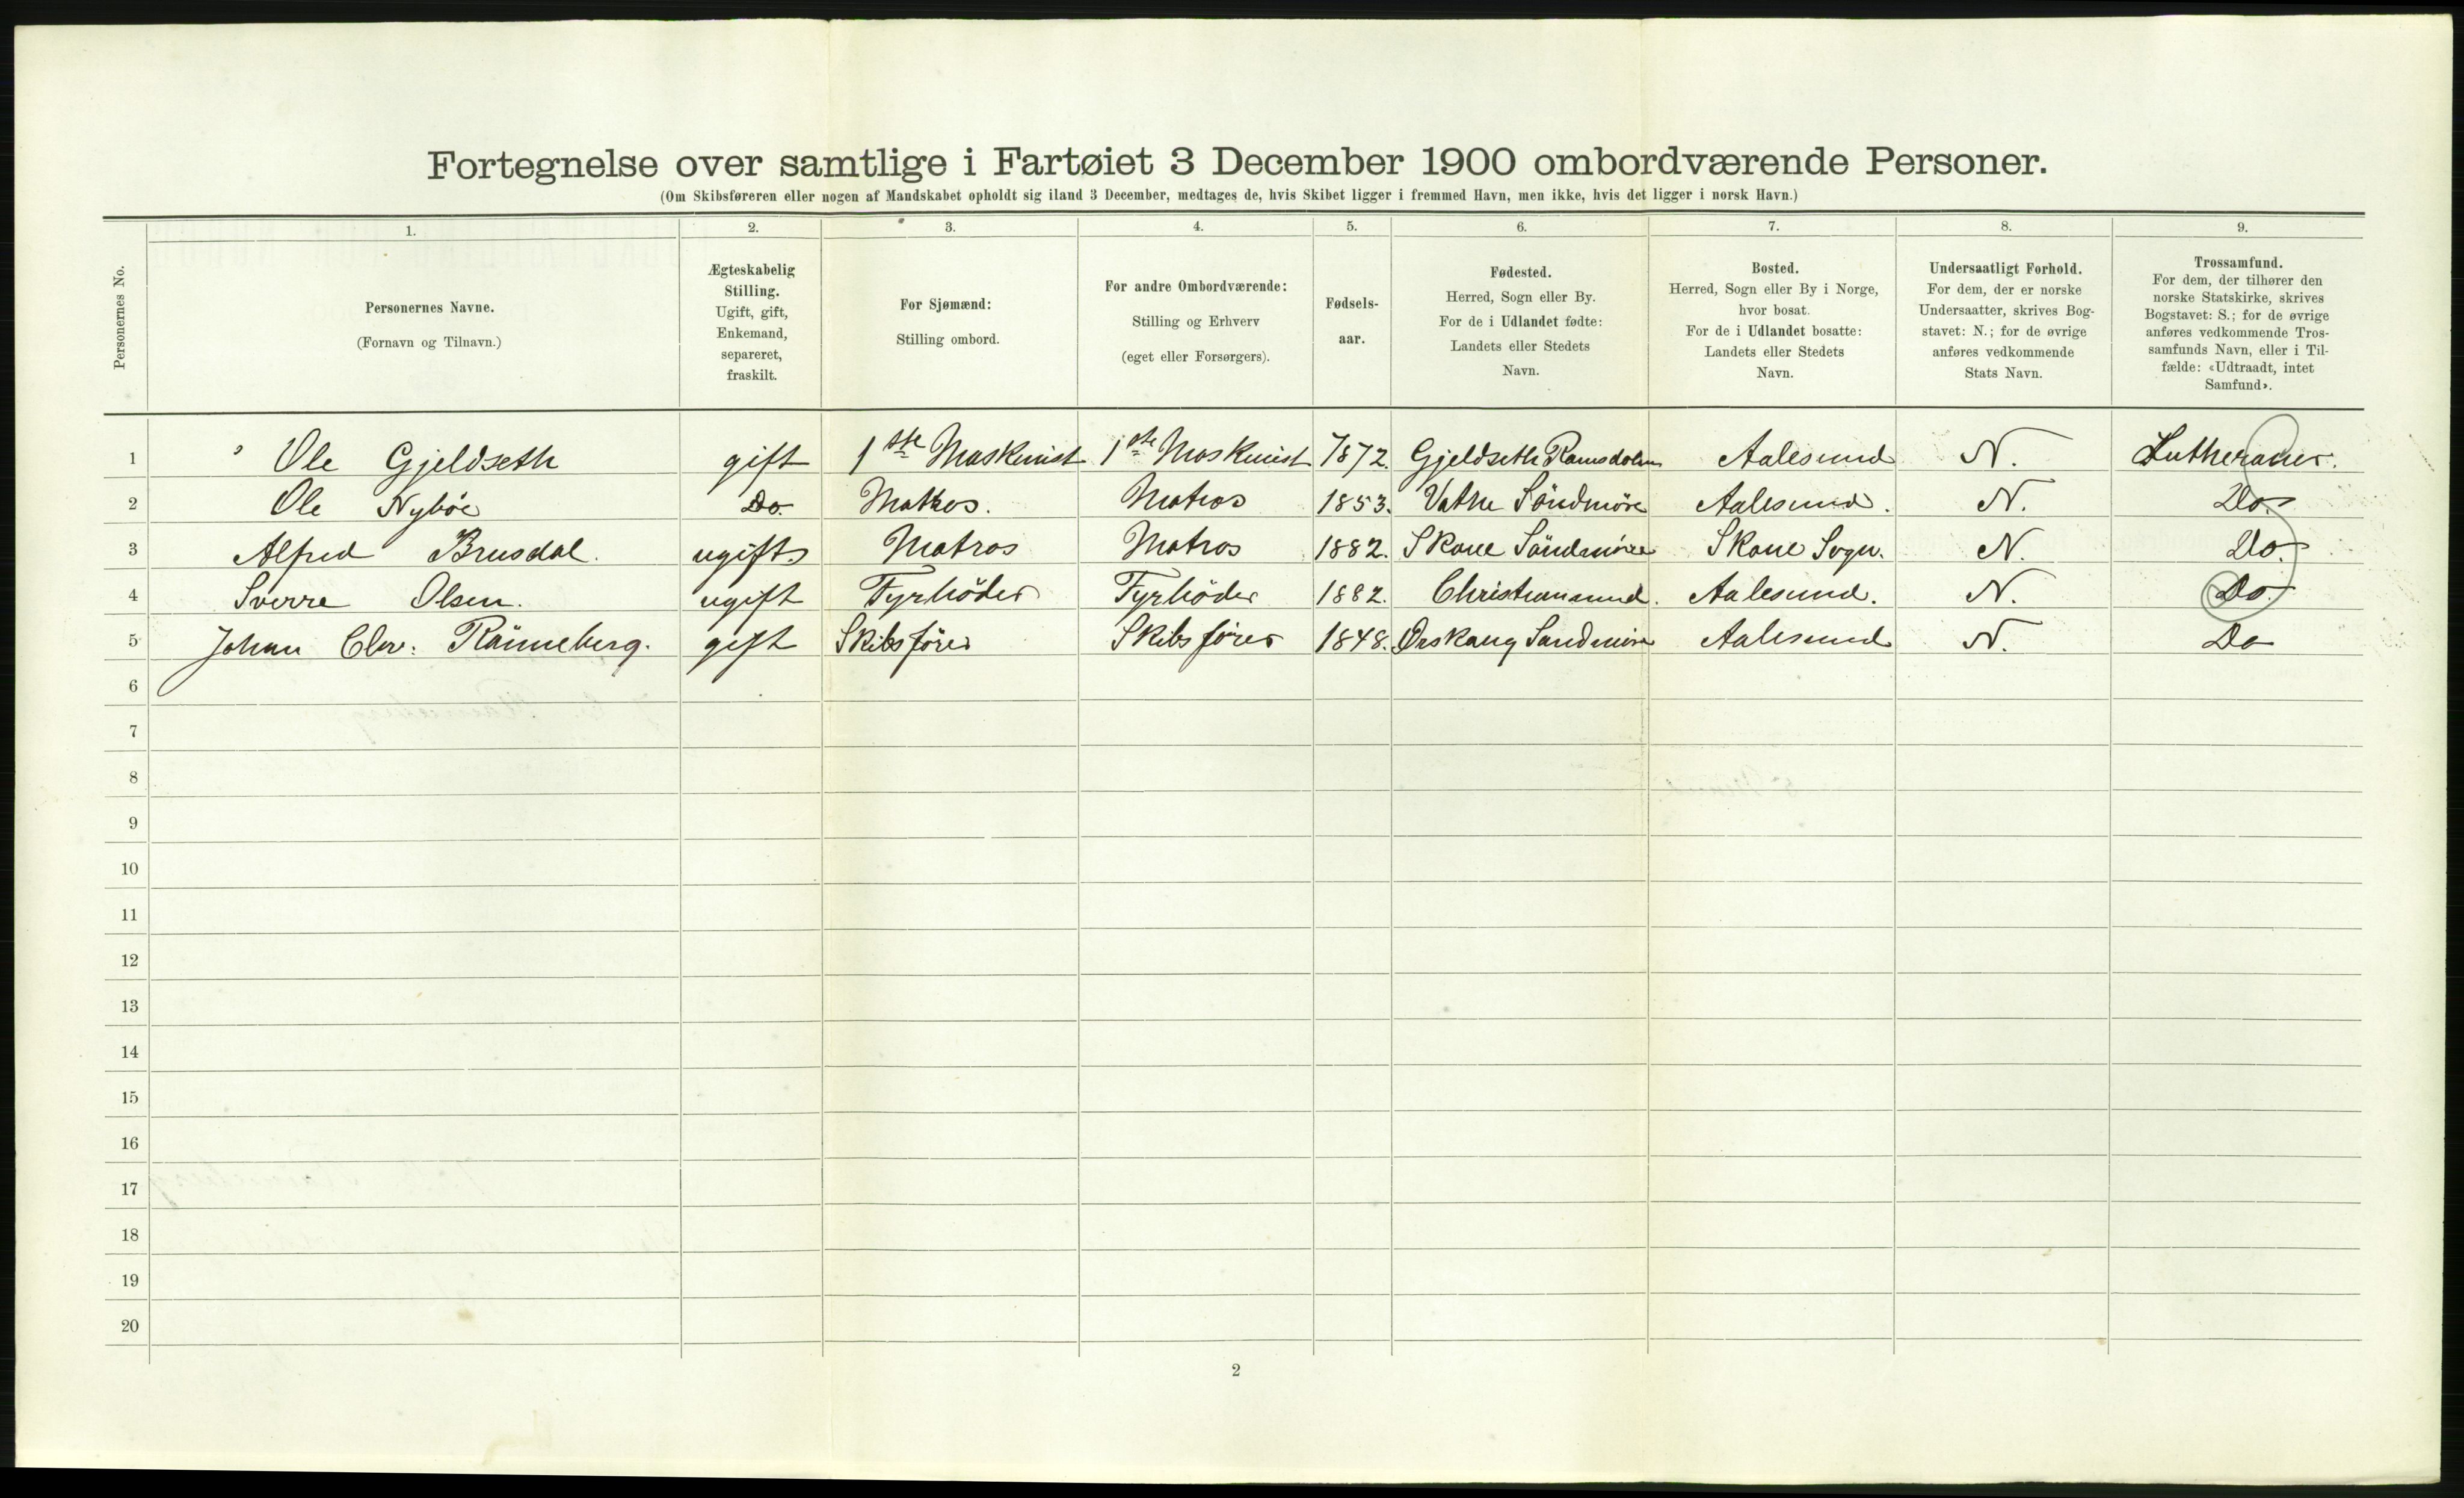 Fortegnelse over samtlige i Fartøiet 3 December 1900 ombordværende Personer.
(Om Skibsføreren eller nogen af Mandskabet opholdt sig iland 3 December, medtages de, hvis Skibet ligger i fremmed Havn, men ikke, hvis det ligger i norsk Havn.)
Personernes No.
1. 2. 3. 4. 5. 6. 7. 8. 9.
Personernes Navne.
(Fornavn og Tilnavn.)
Ægteskabelig
Stilling.
Ugift, gift,
Enkemand,
separeret,
fraskilt.
For Sjømænd:
Stilling ombord.
For andre Ombordværende:
Stilling og Erhverv
(eget eller Forsørgers).
Fødsels-
aar.
Fødested.
Herred, Sogn eller By.
For de i Udlandet fødte:
Landets eller Stedets
Navn.
Bosted.
Herred, Sogn eller By i Norge,
hvor bosat.
For de i Udlandet bosatte:
Landets eller Stedets
Navn.
Undersaatligt Forhold.
For dem, der er norske
Undersaatter, skrives Bog-
stavet: N.; for de øvrige
anføres vedkommende
Stats Navn.
Trossamfund.
For dem, der tilhører den
norske Statskirke, skrives
Bogstavet: S.; for de øvrige
anføres vedkommende Tros-
samfunds Navn, eller i Til-
fælde: «Udtraadt, intet
Samfund».
1 Ole Gjeldseth gift 1ste Maskinist 1ste Maskinist 1872. Gjeldseth Ramsdalen Aalesund N. Lutheraner.
2 Ole Nyböe Do. Matros. Matros 1853. Vatne Söndmöre Aalesund. N. Do.
3 Alfred Brusdal. ugift Matros Matros 1882. Skoue Söndmöre Skoue Sogn. N. Do.
4 Sverre Olsen. ugift Fyrböder Fyrböder 1882. Christiansund. Aalesund. N. Do.
5 Johan Chr: Rönneberg. gift Skibsförer Skibsförer 1848. Ørskoug Söndmöre Aalesund N. Do
6
7
8
9
10
11
12
13
14
15
16
17
18
19
20
2